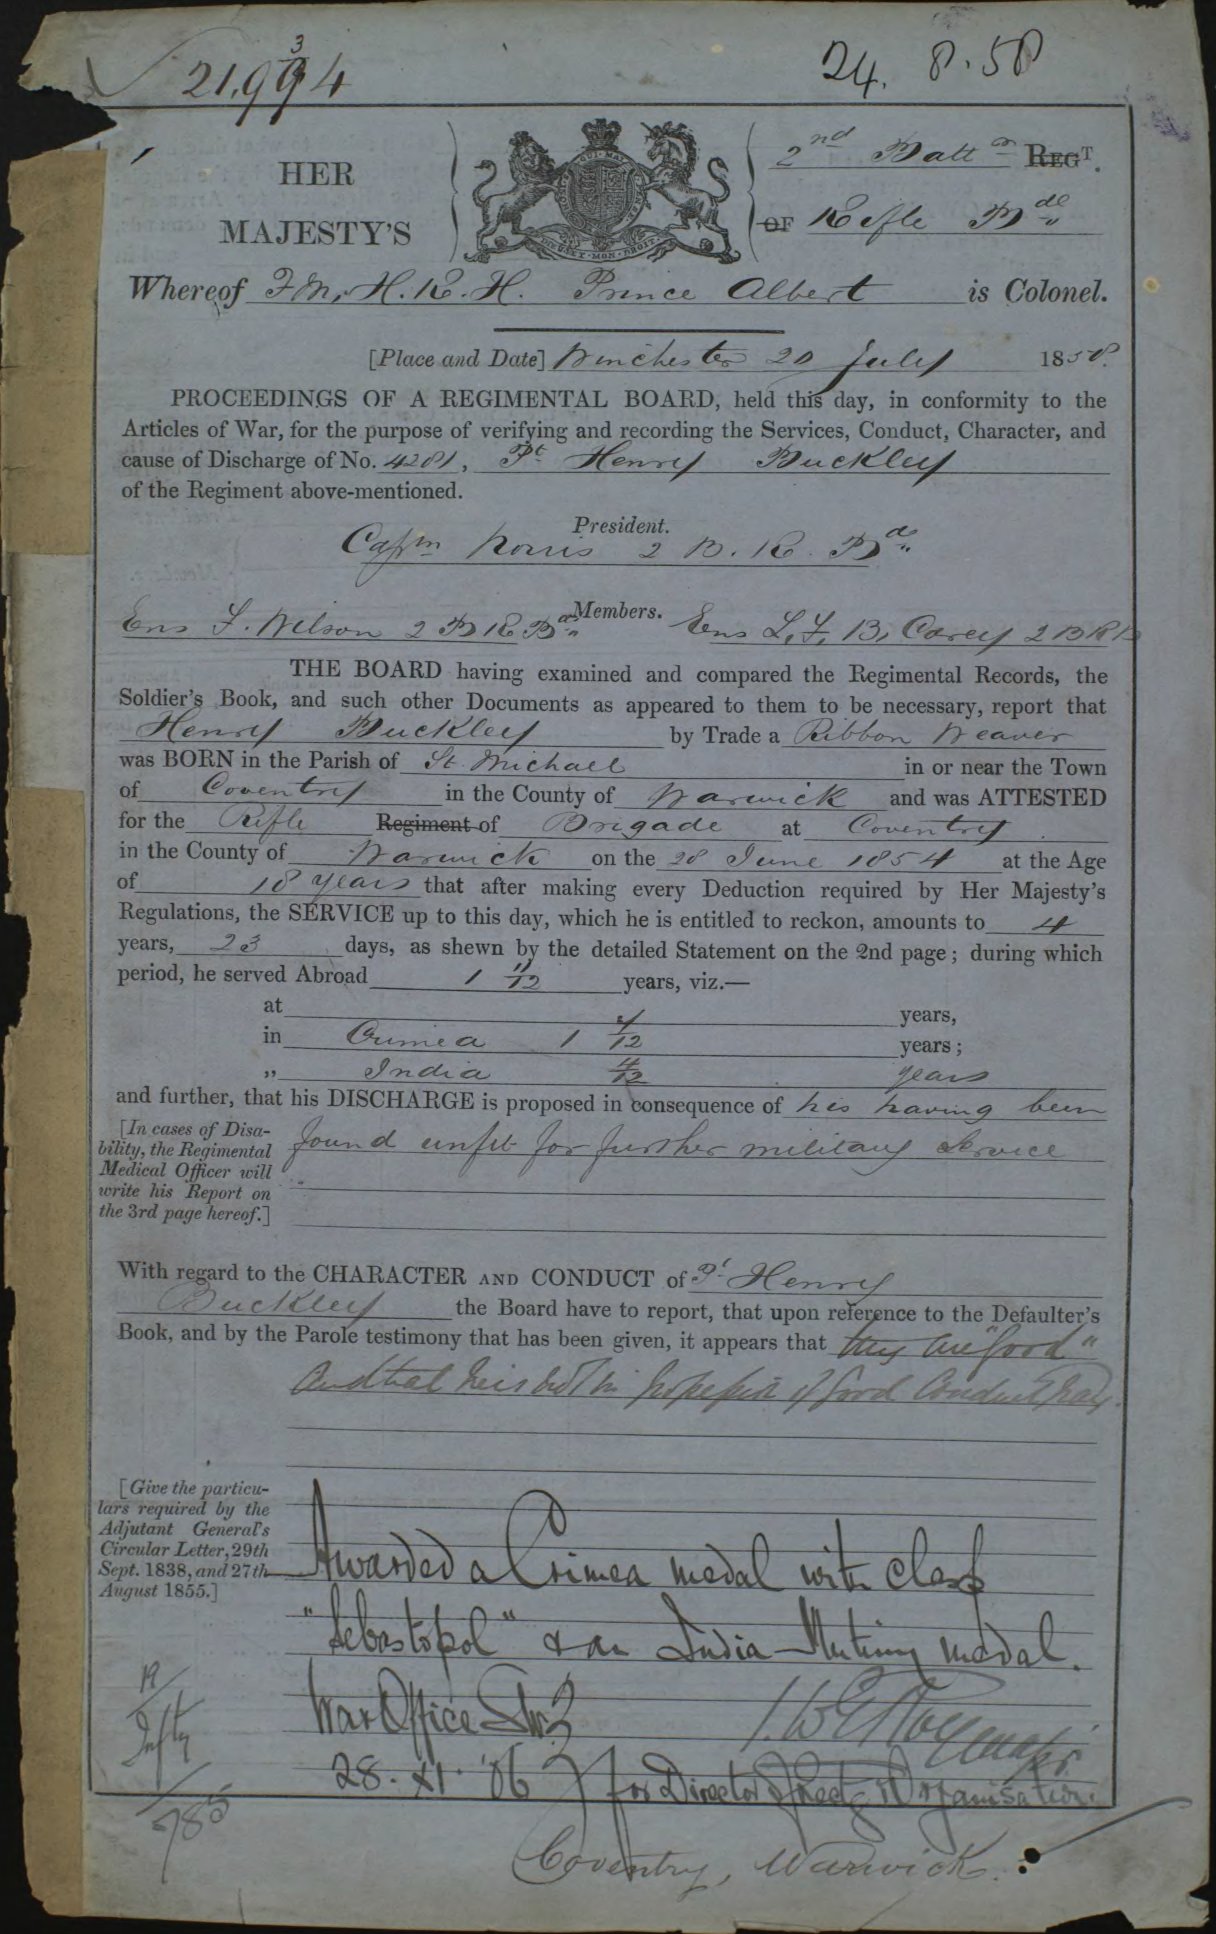 21,994
3
24. 8. 58
HER
MAJESTY'S
2nd Battn REGT.
OF Rifle Bde
Whereof F.M. H.R.H. Prince Albert is Colonel.
[Place and Date] Winchester 20 July 1858.
PROCEEDINGS OF A REGIMENTAL BOARD, held this day, in conformity to the
Articles of War, for the purpose of verifying and recording the Services, Conduct, Character, and
cause of Discharge of No. 4281, Pt Henry Buckley
of the Regiment above-mentioned.
President.
Captn Norris 2 B. R. Bde
Members.
Ens F. Wilson 2 B R Bde Ens L. F. B. Carey 2 B R B
THE BOARD having examined and compared the Regimental Records, the
Soldier's Book, and such other Documents as appeared to them to be necessary, report that
Henry Buckley by Trade a Ribbon Weaver
was BORN in the Parish of St. Michael in or near the Town
of Coventry in the County of Warwick and was ATTESTED
for the Rifle Regiment of Brigade at Coventry
in the County of Warwick on the 28 June 1854 at the Age
of 18 years that after making every Deduction required by Her Majesty's
Regulations, the SERVICE up to this day, which he is entitled to reckon, amounts to 4
years, 23 days, as shewn by the detailed Statement on the 2nd page; during which
period, he served Abroad 1 11/12 years, viz.—
at years,
in Crimea 1 7/12 years;
„ India 4/12 years
and further, that his DISCHARGE is proposed in consequence of his having been
[In cases of Disa-
bility, the Regimental
Medical Officer will
write his Report on
the 3rd page hereof.]
found unfit for further military Service
With regard to the CHARACTER AND CONDUCT of Pt Henry
Buckley the Board have to report, that upon reference to the Defaulter's
Book, and by the Parole testimony that has been given, it appears that they are "Good"
and that he is not in possession of Good Conduct Badge.
[Give the particu-
lars required by the
Adjutant General's
Circular Letter, 29th
Sept. 1838, and 27th
August 1855.]
Awarded a Crimea medal with clasp
"Sebastopol" & an India Mutiny medal.
War Office
28. XI. '06 for Director of Recg & Organisation.
19
785
Coventry, Warwick.